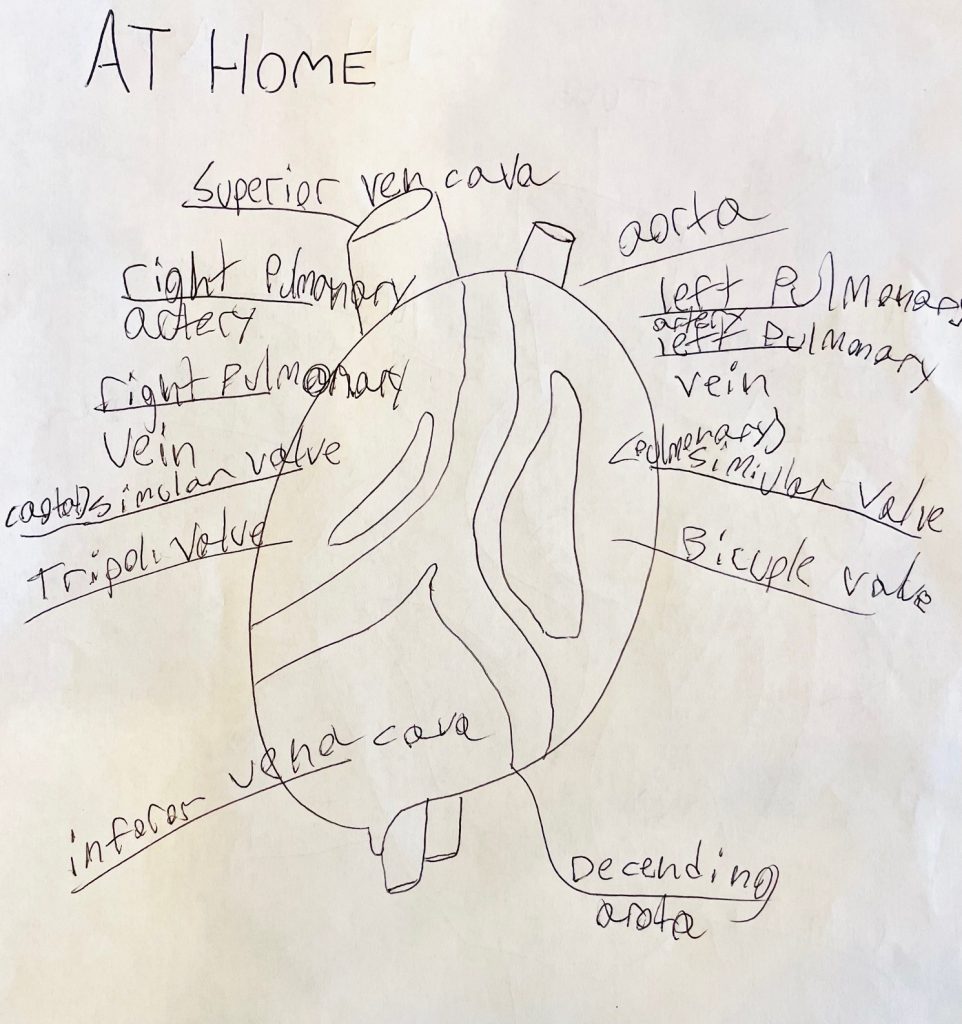 AT HOME
Superior ven cava
aorta
right Pulmonary
artery
left Pulmonary
artery
left Pulmonary
vein
right Pulmonary
vein
(pulmonary)
valve
valve
Bicuple valve
Tripoli Valve
vena cava
Decending